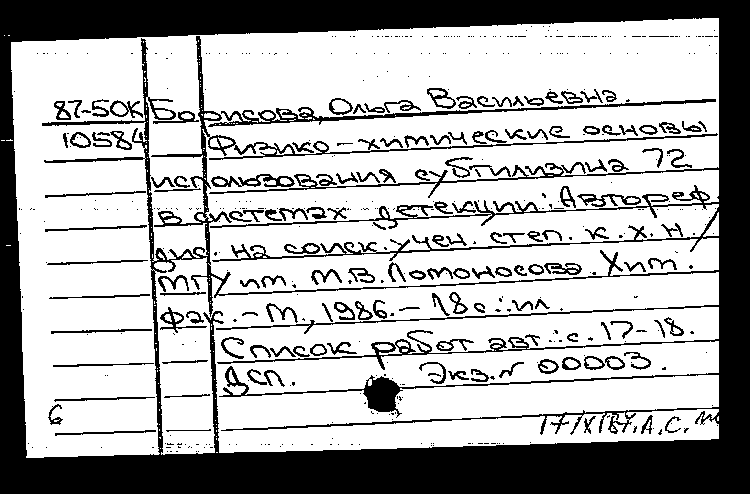 87-50К Борисова, Ольга Васильевна.
10584 Физико-химические основы
использования субтилизина 72
в системах детекции: Автореф.
дис. на соиск. учен. степ. к.х.н. /
МГУ им. М.В.Ломоносова. Хим.
фак. - М., 1986. - 18 с.: ил.
Список работ авт.: с. 17-18.
ДСП. Экз. № 00003.
6
А.С.